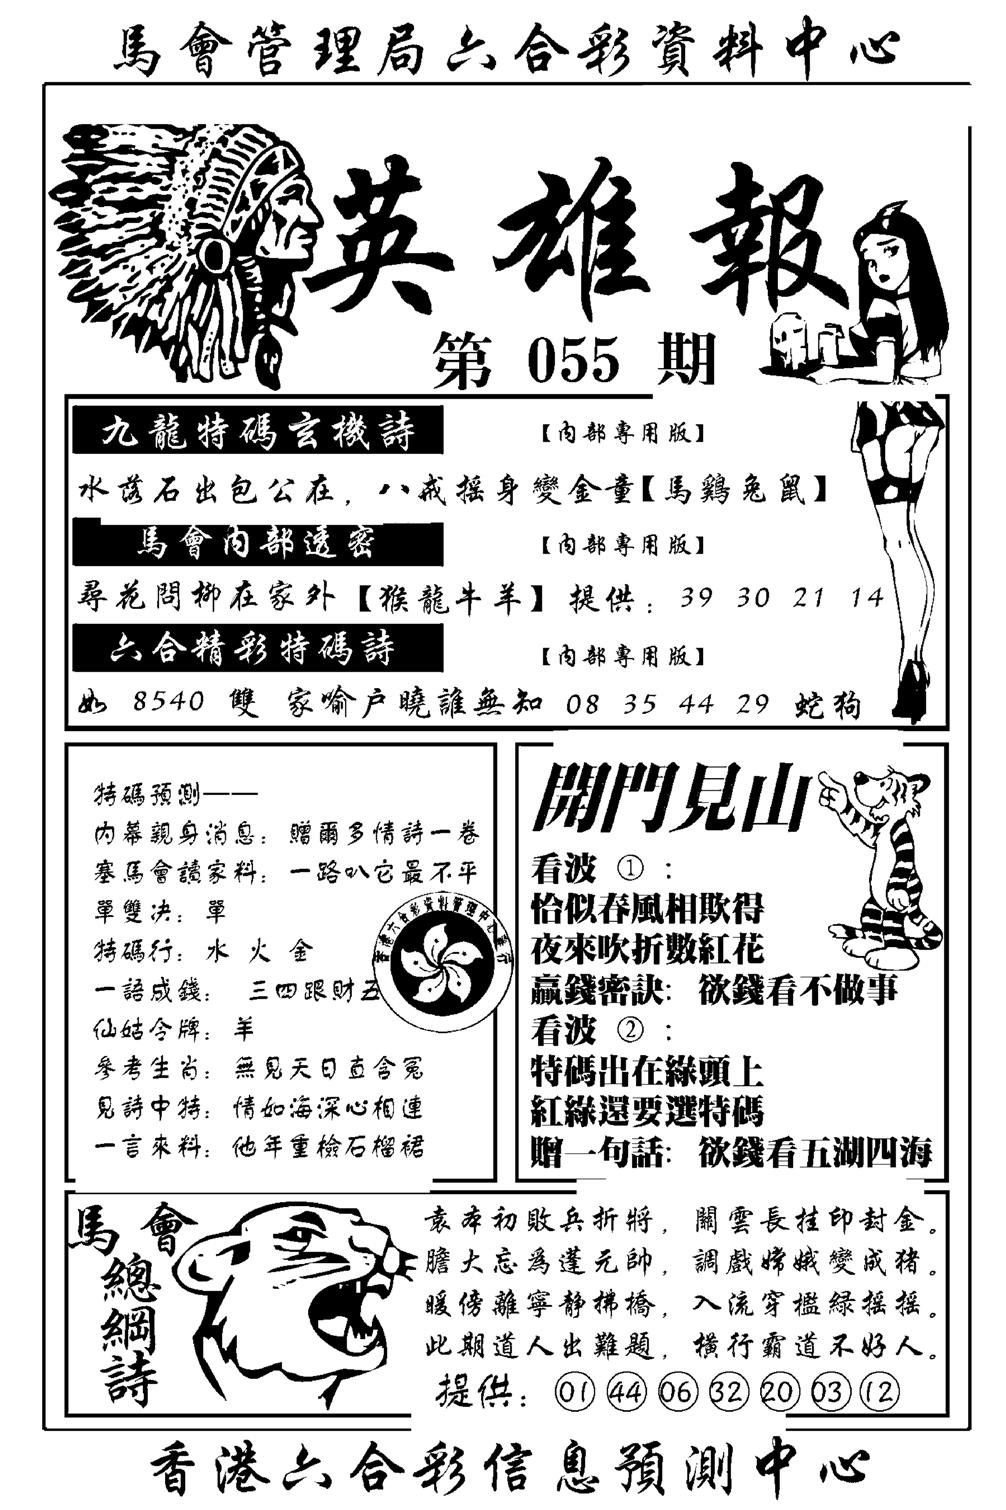 馬會管理局六合彩資料中心
英雄報
第 055 期
九龍特碼玄機詩
【內部專用版】
水落石出包公在，八戒摇身變金童【馬鷄兔鼠】
馬會內部透密
【內部專用版】
尋花問柳在家外【猴龍牛羊】提供：39 30 21 14
六合精彩特碼詩
【內部專用版】
如 8540 雙 家喻户曉誰無知 08 35 44 29 蛇狗
特碼預測——
內幕親身消息：贈爾多情詩一卷
塞馬會讀家料：一路叭它最不平
單雙决：單
特碼行：水 火 金
一語成錢： 三四跟財五
仙姑令牌：羊
參考生肖：無見天日直含冤
見詩中特：情如海深心相連
一言來料：他年重檢石榴裙
開門見山
看波 ①：
恰似春風相欺得
夜來吹折數紅花
贏錢密訣：欲錢看不做事
看波 ②：
特碼出在綠頭上
紅綠還要選特碼
贈一句話：欲錢看五湖四海
馬會
總綱詩
袁本初敗兵折將，關雲長挂印封金。
膽大忘爲蓬元帥，調戲嫦娥變成猪。
暖傍離寧静拂橋，入流穿檻緑摇摇。
此期道人出難題，橫行霸道不好人。
提供：01 44 06 32 20 03 12
香港六合彩信息預測中心